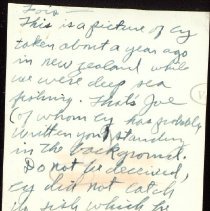 Lois —
This is a picture of Cy
taken about a year ago
in new zealand while
we were deep sea
fishing. Thats Joe
(of whom cy has probably
written you) standing
in the background.
Do not be deceived,
cy did not catch
fish which he